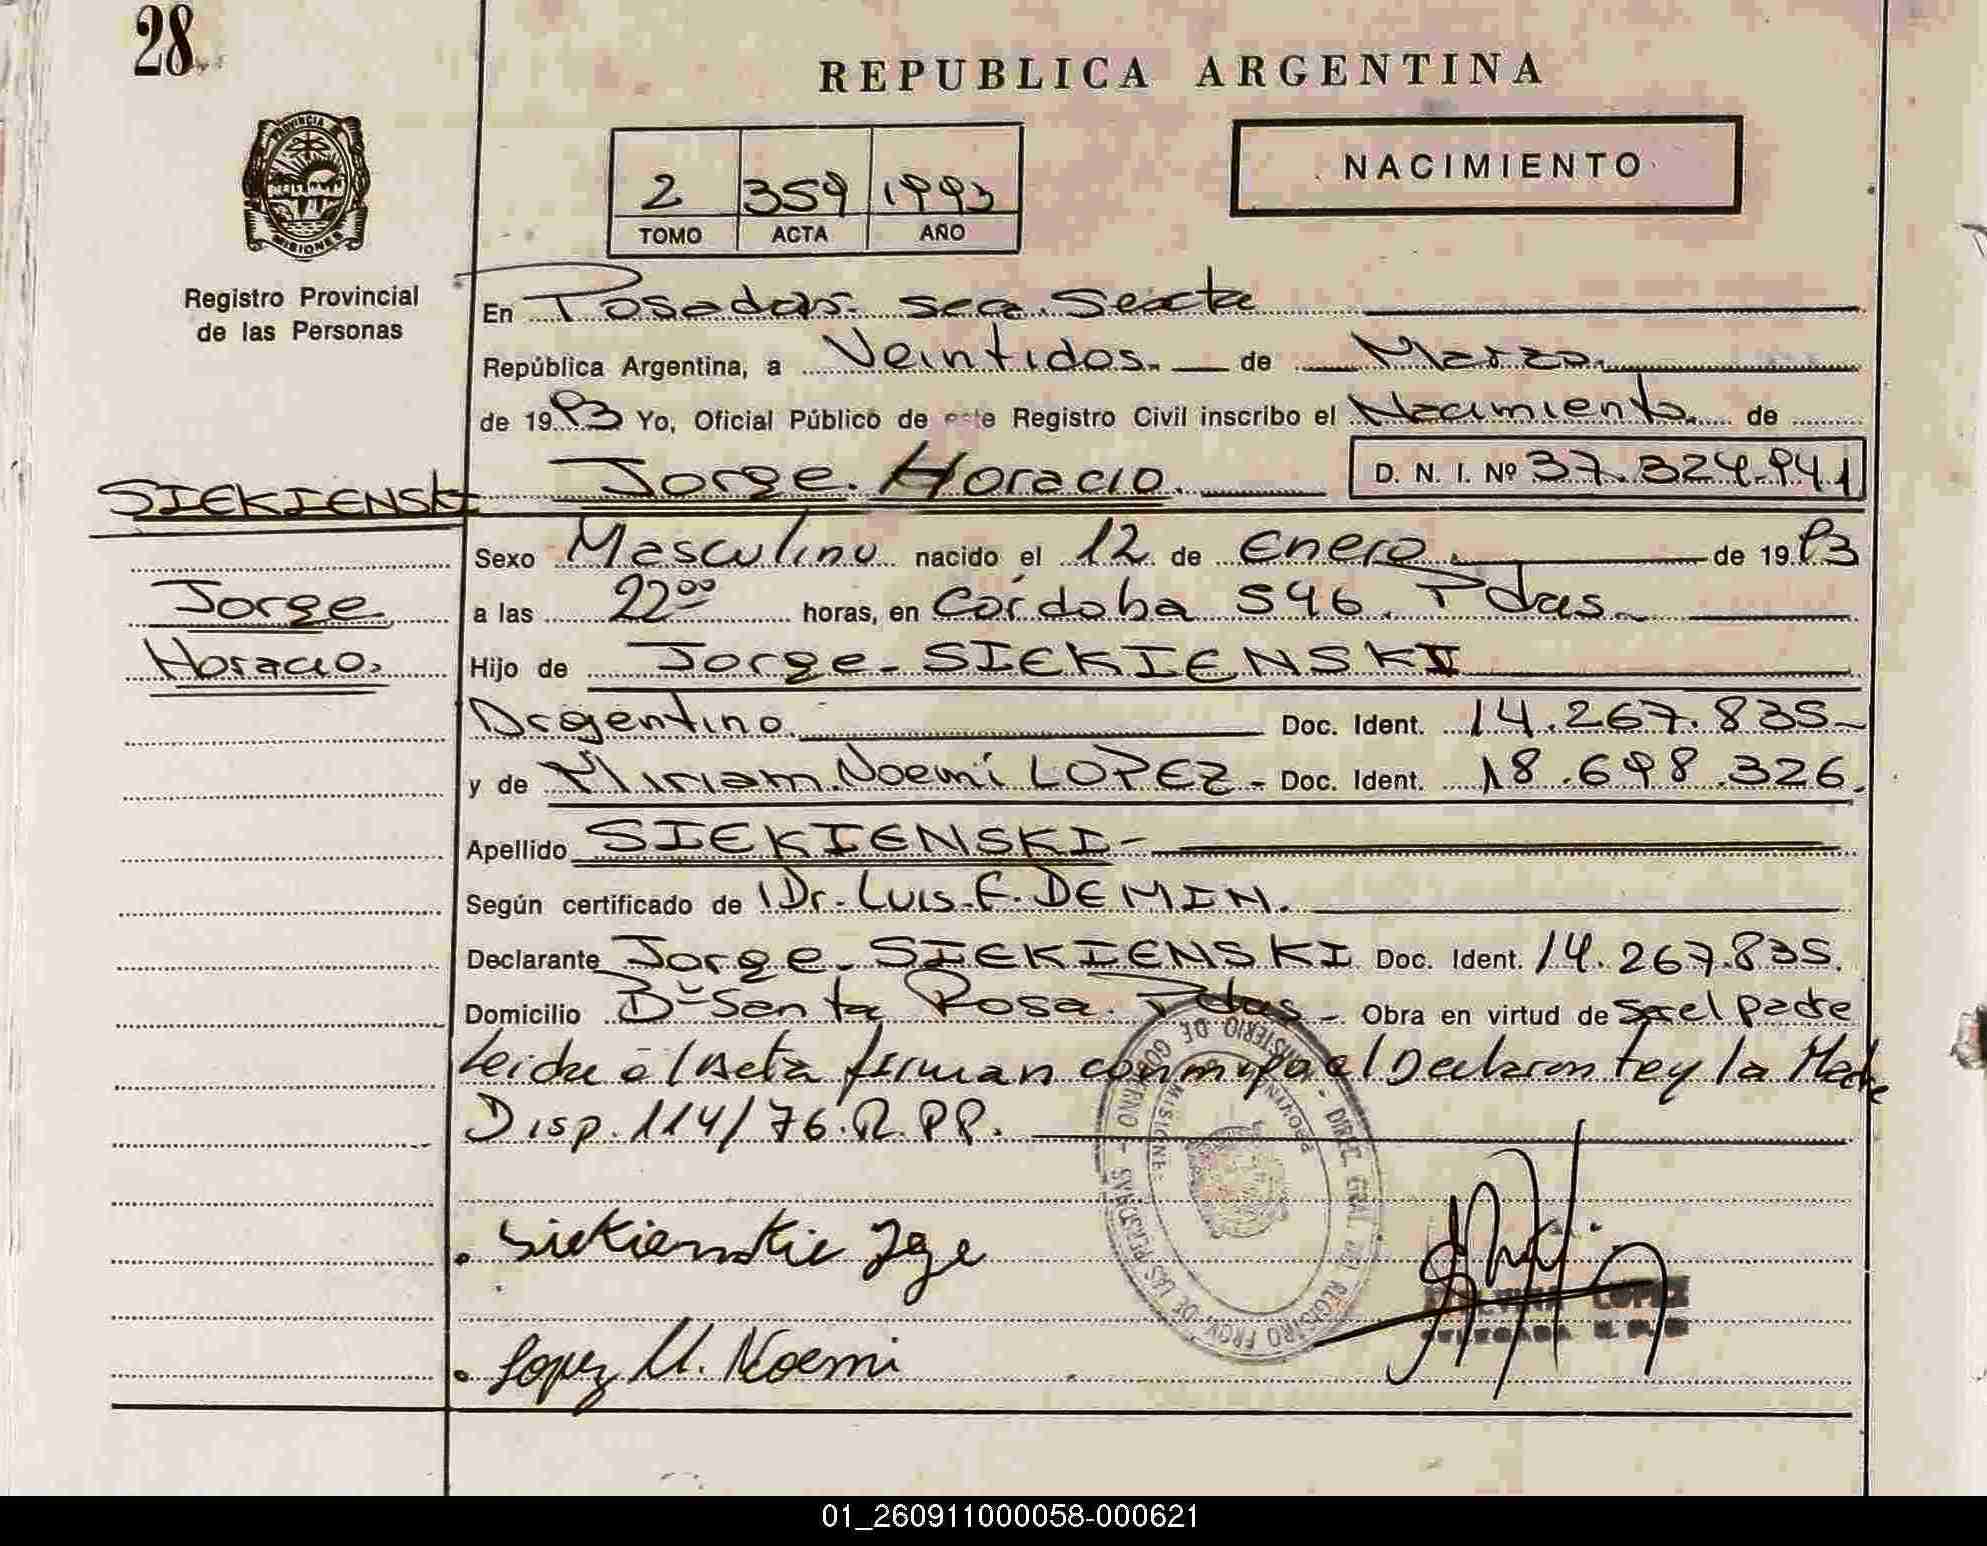 28
REPUBLICA ARGENTINA
PROVINCIA
MISIONES
NACIMIENTO
2 359 1993
TOMO ACTA AÑO
Registro Provincial
de las Personas
En Posadas. sec. Sexta
República Argentina, a Veintidos. de Marzo.
de 1993 Yo, Oficial Público de este Registro Civil inscribo el Nacimiento. de
SIEKIENSKI Jorge. Horacio. D. N. I. Nº 37.324.941
Sexo Masculino nacido el 12 de Enero. de 1993
Jorge a las 22⁰⁰ horas, en Córdoba 596. Pdas.
Horacio. Hijo de Jorge- SIEKIENSKI
Argentino. Doc. Ident. 14.267.835-
y de Miriam. Noemí LOPEZ- Doc. Ident. 18.698.326.
Apellido SIEKIENSKI-
Según certificado de Dr. Luis. F. DEMIN.
Declarante Jorge- SIEKIENSKI Doc. Ident. 14.267.835.
Domicilio Bº Santa Rosa. Pdas- Obra en virtud de ser el padre
Leida el Acta firman conmigo el Declarante y la Madre
Disp. 114/76. R.PP.
MINISTERIO DE GOBIERNO - DIREC. GRAL. DEL REGISTRO PROV. DE LAS PERSONAS
PROVINCIA MISIONES
Siekienskie Jge
LOPEZ
DELEGADA
Lopez M. Noemi
01_260911000058-000621